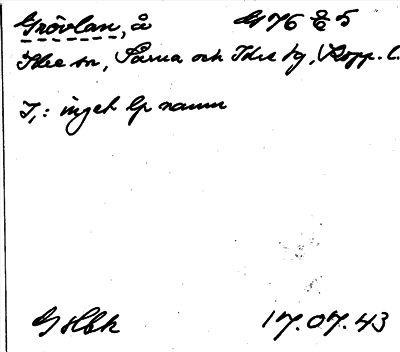 Grövlan, å G 76 Ö 5
Idre sn, Särna och Idre tg, Kopp. l.
I,: inget lp namn
G Hbk 17.07.43